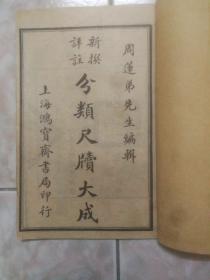 周蓮弟先生編輯
新撰
詳註
分類尺牘大成
上海鴻寶齋書局印行